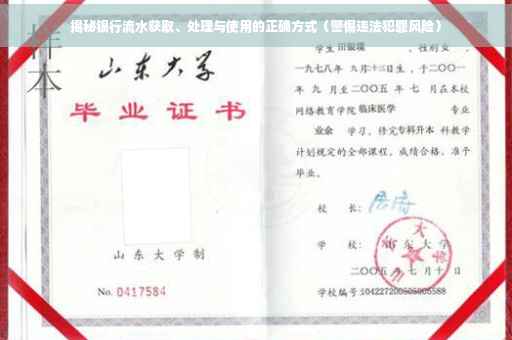 揭秘银行流水获取、处理与使用的正确方式(警惕违法犯罪风险)
样本
山东大学
毕业证书
山东大学制
No. 0417584
学生 田银璞 ,性别 女 ,
一九七八年 九月十三日生,于二〇〇一
年 九 月至二〇〇五 年 七 月在本校
网络教育学院 临床医学 专业
业余 学习,修完专科升本 科教学
计划规定的全部课程,成绩合格,准予
毕业。
校 长:
学 校:山东大学
二〇〇五 年 七月 十 日
学校编号: